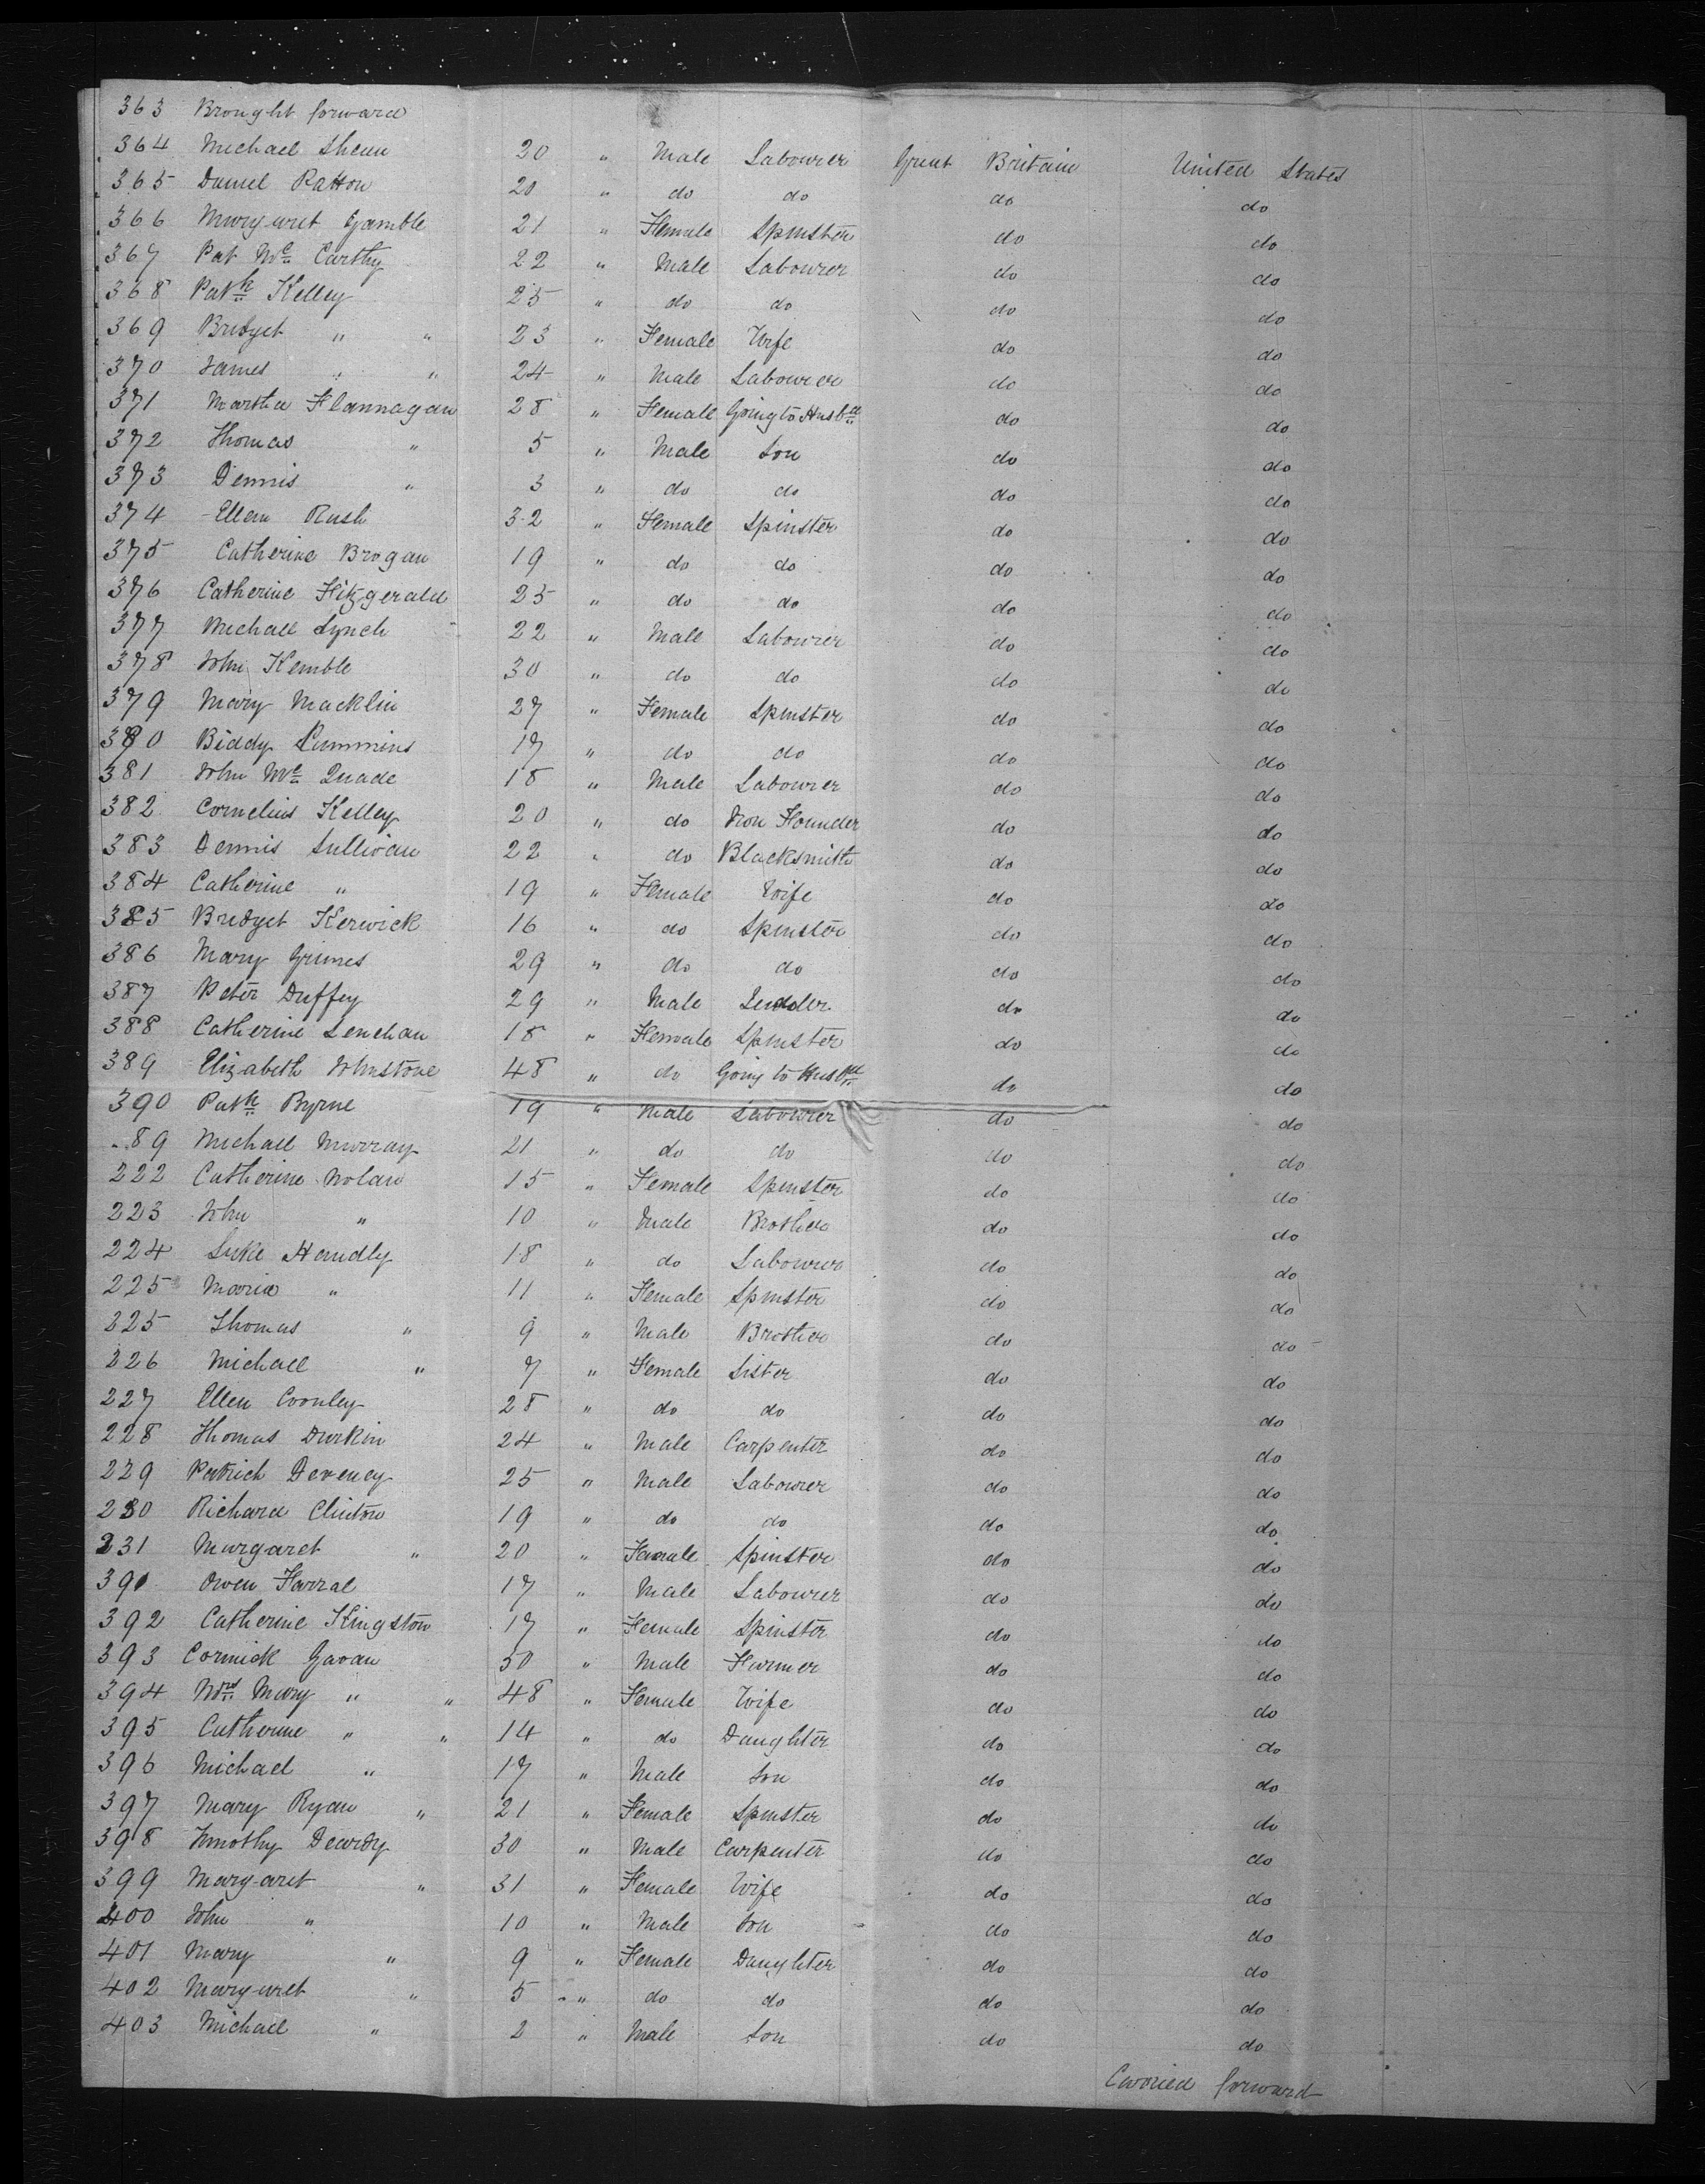 363 Brought forward
364 Michael Sheen 20 " Male Labourer Great Britain United States
365 Daniel Ratton 20 " do do do do
366 Margaret Gamble 21 " Female Spinster do do
367 Pat Mc Carthy 22 " Male Labourer do do
368 Patk Kelley 25 " do do do do
369 Bridget " " 23 " Female Wife do do
370 James " " 24 " Male Labourer do do
371 Martha Flannagan 28 " Female Going to Husbd do do
372 Thomas " 5 " Male Son do do
373 Dennis " 3 " do do do do
374 Ellen Rush 32 " Female Spinster do do
375 Catherine Brogan 19 " do do do do
376 Catherine Fitzgerald 25 " do do do do
377 Michael Lynch 22 " Male Labourer do do
378 John Kemble 30 " do do do do
379 Mary Macklin 27 " Female Spinster do do
380 Biddy Cummins 17 " do do do do
381 John Mc Quade 18 " Male Labourer do do
382 Cornelius Kelley 20 " do Iron Founder do do
383 Dennis Sullivan 22 " do Blacksmith do do
384 Catherine " 19 " Female Wife do do
385 Bridget Kerwick 16 " do Spinster do do
386 Mary Grimes 29 " do do do do
387 Peter Duffey 29 " Male do do
388 Catherine Lenehan 18 " Female Spinster do do
389 Elizabeth Johnstone 48 " do Going to Husbd do do
390 Patk Byrne 19 " Male Labourer do do
89 Michael Murray 21 " do do do do
222 Catherine Nolan 15 " Female Spinster do do
223 John " 10 " Male Brother do do
224 Luke Handly 18 " do Labourer do do
225 Maria " 11 " Female Spinster do do
225 Thomas " 9 " Male Brother do do
226 Michael " 7 " Female Sister do do
227 Ellen Coonley 28 " do do do do
228 Thomas Durkin 24 " Male Carpenter do do
229 Patrick Deveney 25 " Male Labourer do do
230 Richard Clinton 19 " do do do do
231 Margaret " 20 " Female Spinster do do
391 Owen Farral 17 " Male Labourer do do
392 Catherine Kingston 17 " Female Spinster do do
393 Cormick Gavan 50 " Male Farmer do do
394 Mrs Mary " " 48 " Female Wife do do
395 Catherine " " 14 " do Daughter do do
396 Michael " 17 " Male Son do do
397 Mary Ryan " 21 " Female Spinster do do
398 Timothy Deardy 30 " Male Carpenter do do
399 Margaret " 31 " Female Wife do do
400 John " 10 " Male Son do do
401 Mary " 9 " Female Daughter do do
402 Margaret " 5 " do do do do
403 Michael " 2 " Male Son do do
Carried forward